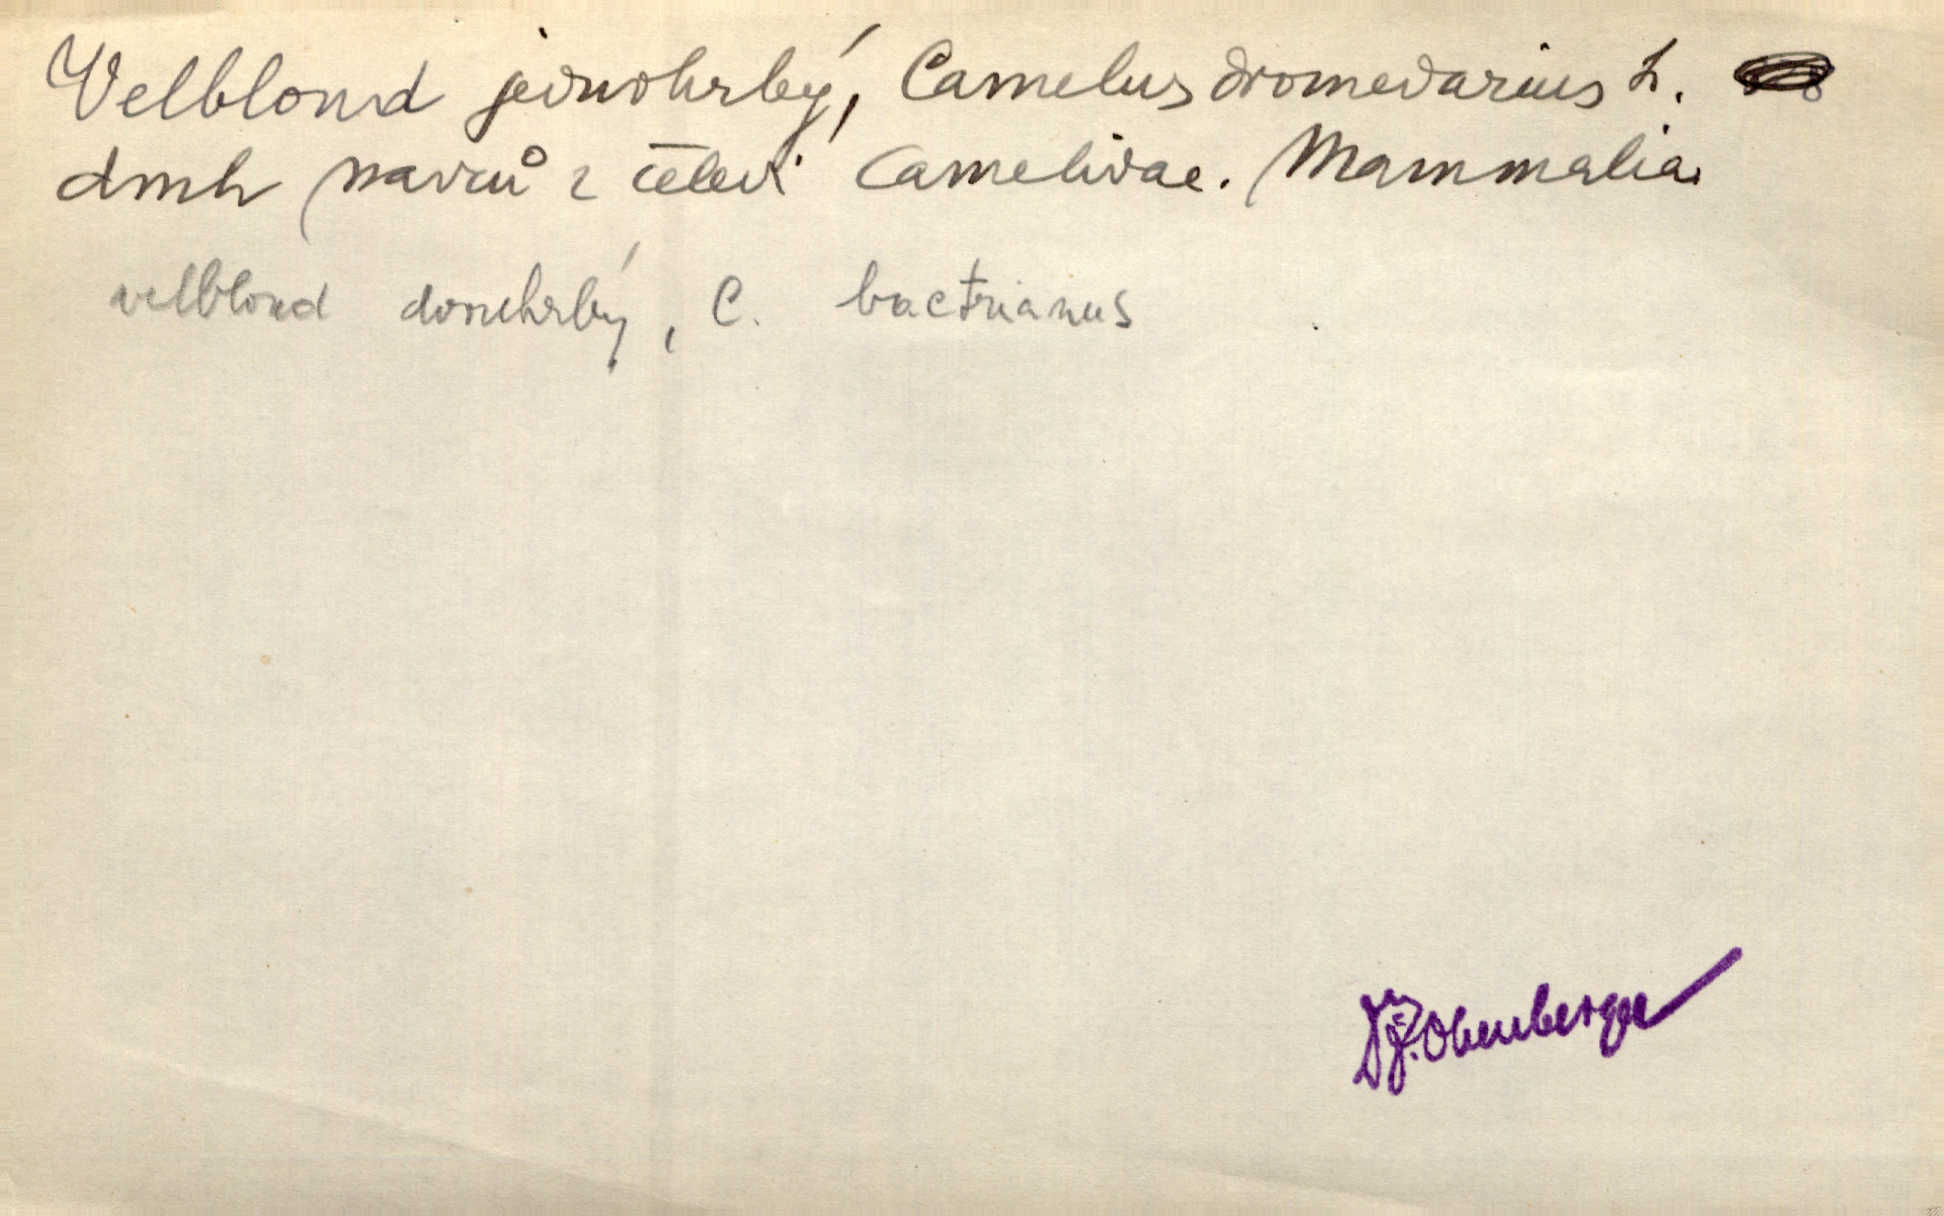 Velbloud jednohrbý, Camelus dromedarius L.
druh savců z čeledi Camelidae. Mammalia.
velbloud dvouhrbý, C. bactrianus
Dr J. Obenberger